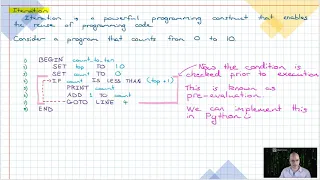 Iteration
Iteration is a powerful programming construct that enables
the reuse of programming code.
Consider a program that counts from 0 to 10.
1) BEGIN count_to_ten
2) SET top TO 10
3) SET count TO 0
4) IF count IS LESS THAN (top + 1)
5) PRINT count
6) ADD 1 TO count
7) GOTO LINE 4
8) END
Now the condition is
checked prior to execution
This is known as
pre-evaluation.
We can implement this
in Python